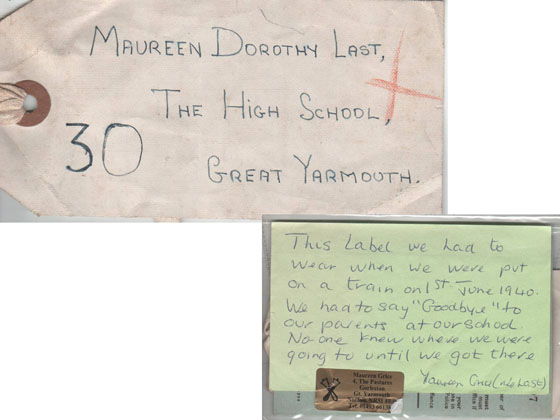 MAUREEN DOROTHY LAST,
THE HIGH SCHOOL,
30
GREAT YARMOUTH.
This Label we had to
wear when we were put
on a train on 1st June 1940.
We had to say "Goodbye" to
our parents at our school.
No-one knew where we were
going to until we got there
Maureen Grice (née Last)
Maureen Grice
4, The Pastures
Gorleston
Gt. Yarmouth